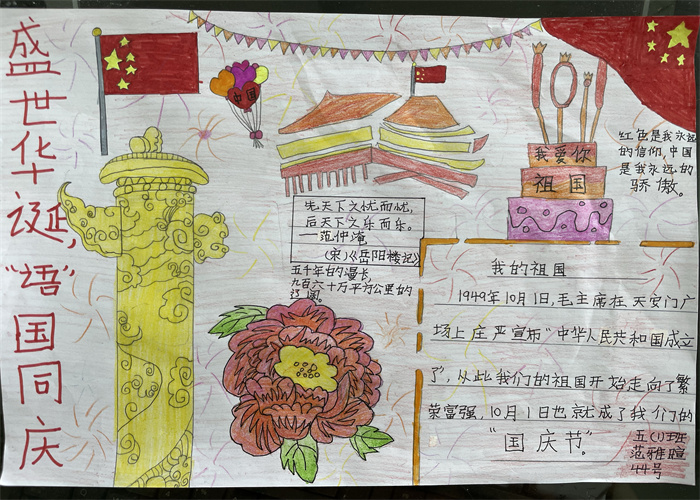 盛世华诞，
“语”国同庆
中国
我爱你
祖国
红色是我永远
的信仰,中国
是我永远的
骄傲。
先天下之忧而忧,
后天下之乐而乐。
—范仲淹
(宋)《岳阳楼记》
五千年的漫长
九百六十万平方公里的
辽阔。
我的祖国
1949年10月1日,毛主席在天安门广
场上庄严宣布“中华人民共和国成立
了,从此我们的祖国开始走向了繁
荣富强,10月1日也就成了我们的
“国庆节”。
五(1)班
范雅暄
44号